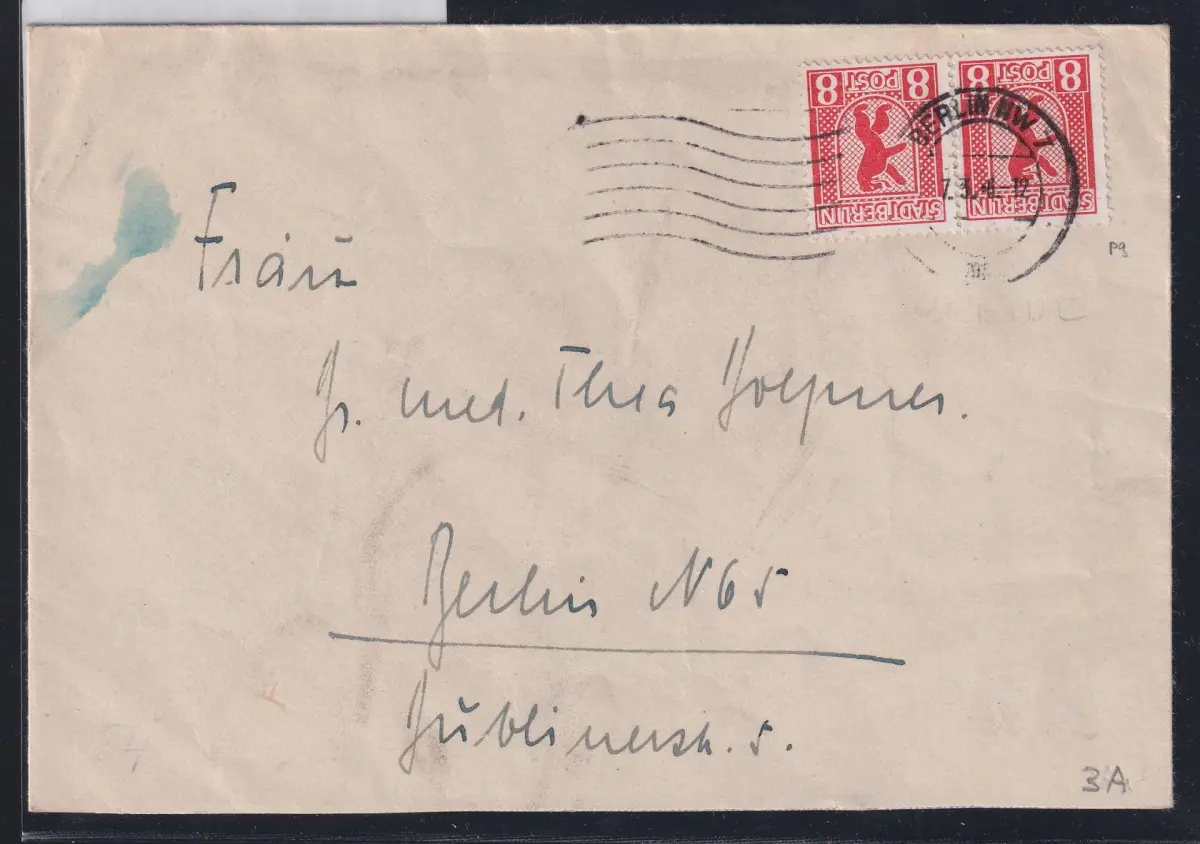 8 POST 8
STADT BERLIN
8 POST 8
STADT BERLIN
BERLIN NW 7
7.3.
P9
Frau
Dr. med. Thea
Berlin N 65
Dublinerstr. 5.
3A